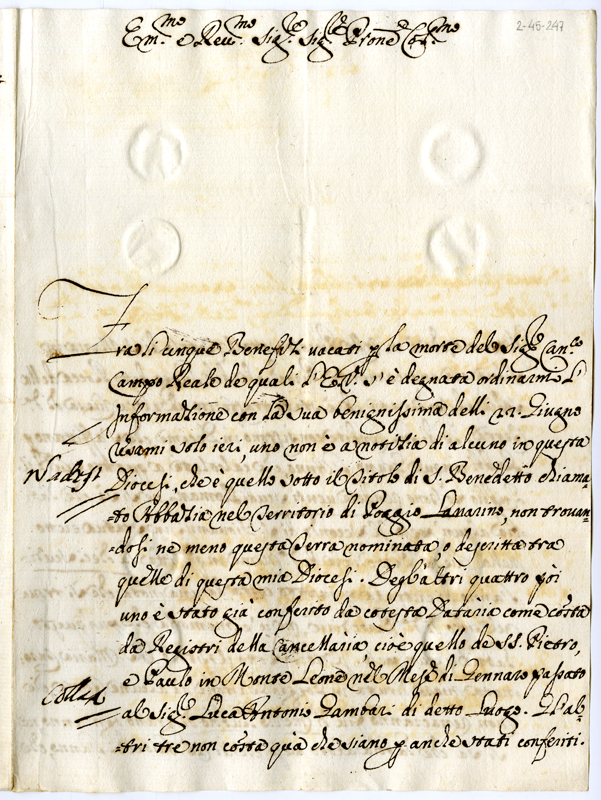 2-45-247
Em.mo e Reu.mo Sig.re Sig.re Prone Col.mo
Fra li cinque Benefizi uacati p la morte del Sig.re Can.co
Campo Reale de quali l'E.V. s'è degnata ordinarmi l'
Informazione con la sua benignissima delli 22. Giugno
resami solo ieri, uno non è a notizia di alcuno in questa
Diocesi, che è quello sotto il titolo di S. Benedetto chiama-
-to Abbazia nel Territorio di Poggio Lanarino, non trouan-
-dosi ne meno questa Terra nominata, o descritta tra
quelle di questa mia Diocesi. Degl'altri quattro poi
uno è stato già conferito da cotesta Dataria come costa
da Registri della Cancellaria, cioè quello de SS. Pietro,
e Paulo in Monte Leone nel Mese di Gennaro passato
al Sig.re Luca Antonio Gambari di detto Luogo. Gl'al-
-tri tre non costa quà che siano p anche stati conferiti.